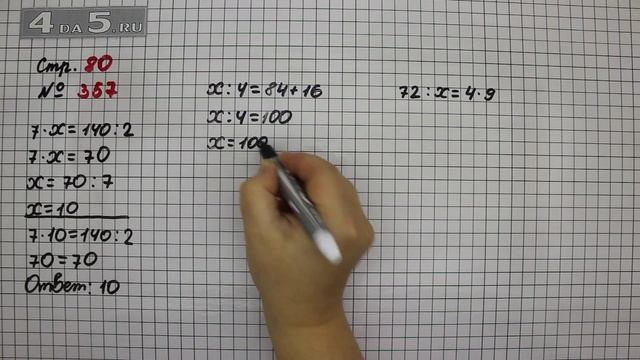 4 DA 5.RU
Стр. 80
№ 357
7·x=140:2
7·x=70
x=70:7
x=10
7·10=140:2
70=70
Ответ: 10
x:4=84+16
x:4=100
x=100
72:x=4·9